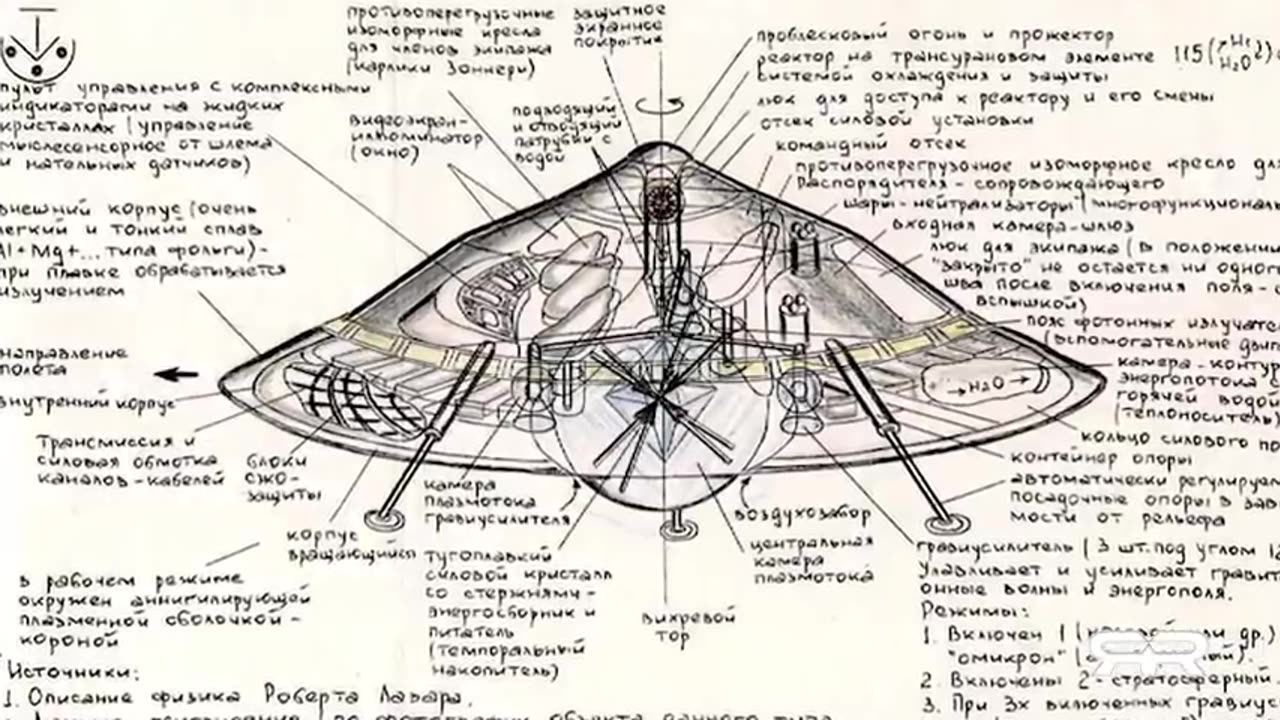 противоперегрузочные
изоморфные кресла
для членов экипажа
(карлики Зоннери)
защитное
экранное
покрытие
проблесковый огонь и прожектор
реактор на трансурановом элементе 115
системой охлаждения и защиты
люк для доступа к реактору и его смены
отсек силовой установки
командный отсек
противоперегрузочное изоморфное кресло для
распорядителя - сопровождающего
шары-нейтрализаторы (многофункциональн
входная камера-шлюз
люк для экипажа (в положении
"закрыто" не остается ни одного
шва после включения поля-с
вспышкой)
пояс фотонных излучате
(вспомогательные двиг
камера-контур
энергопотока с
горячей водой
(теплоноситель)
кольцо силового по
контейнер опоры
автоматически регулируем
посадочные опоры в зав
мости от рельефа
пульт управления с комплексными
индикаторами на жидких
кристаллах (управление
мыслесенсорное от шлема
и натольных датчиков)
видеоэкран-
иллюминатор
(окно)
подводящий
и отводящий
патрубки с
водой
внешний корпус (очень
легкий и тонкий сплав
Al+Mg+... типа фольги)-
при плавке обрабатывается
излучением
направление
полёта
внутренний корпус
→H2O→
Трансмиссия и
силовая обмотка
каналов-кабелей
блоки
СЖО-
защиты
корпус
вращающийся
камера
плазмотока
гравиусилителя
воздухозабор
центральная
камера
плазмотока
тугоплавкий
силовой кристалл
со стержнями-
энергосборник и
питатель
(темпоральный
накопитель)
вихревой
тор
в рабочем режиме
окружен аннигилирующей
плазменной оболочкой-
короной
гравиусилитель (3 шт. под углом 12
Улавливает и усиливает гравит
онные волны и энергополя.
Режимы:
1. Включен 1 (
"омикрон"
2. Включены 2-стратосферный.
3. При 3х включенных гравиус
Источники:
1. Описание физика Роберта Лазара.
RR